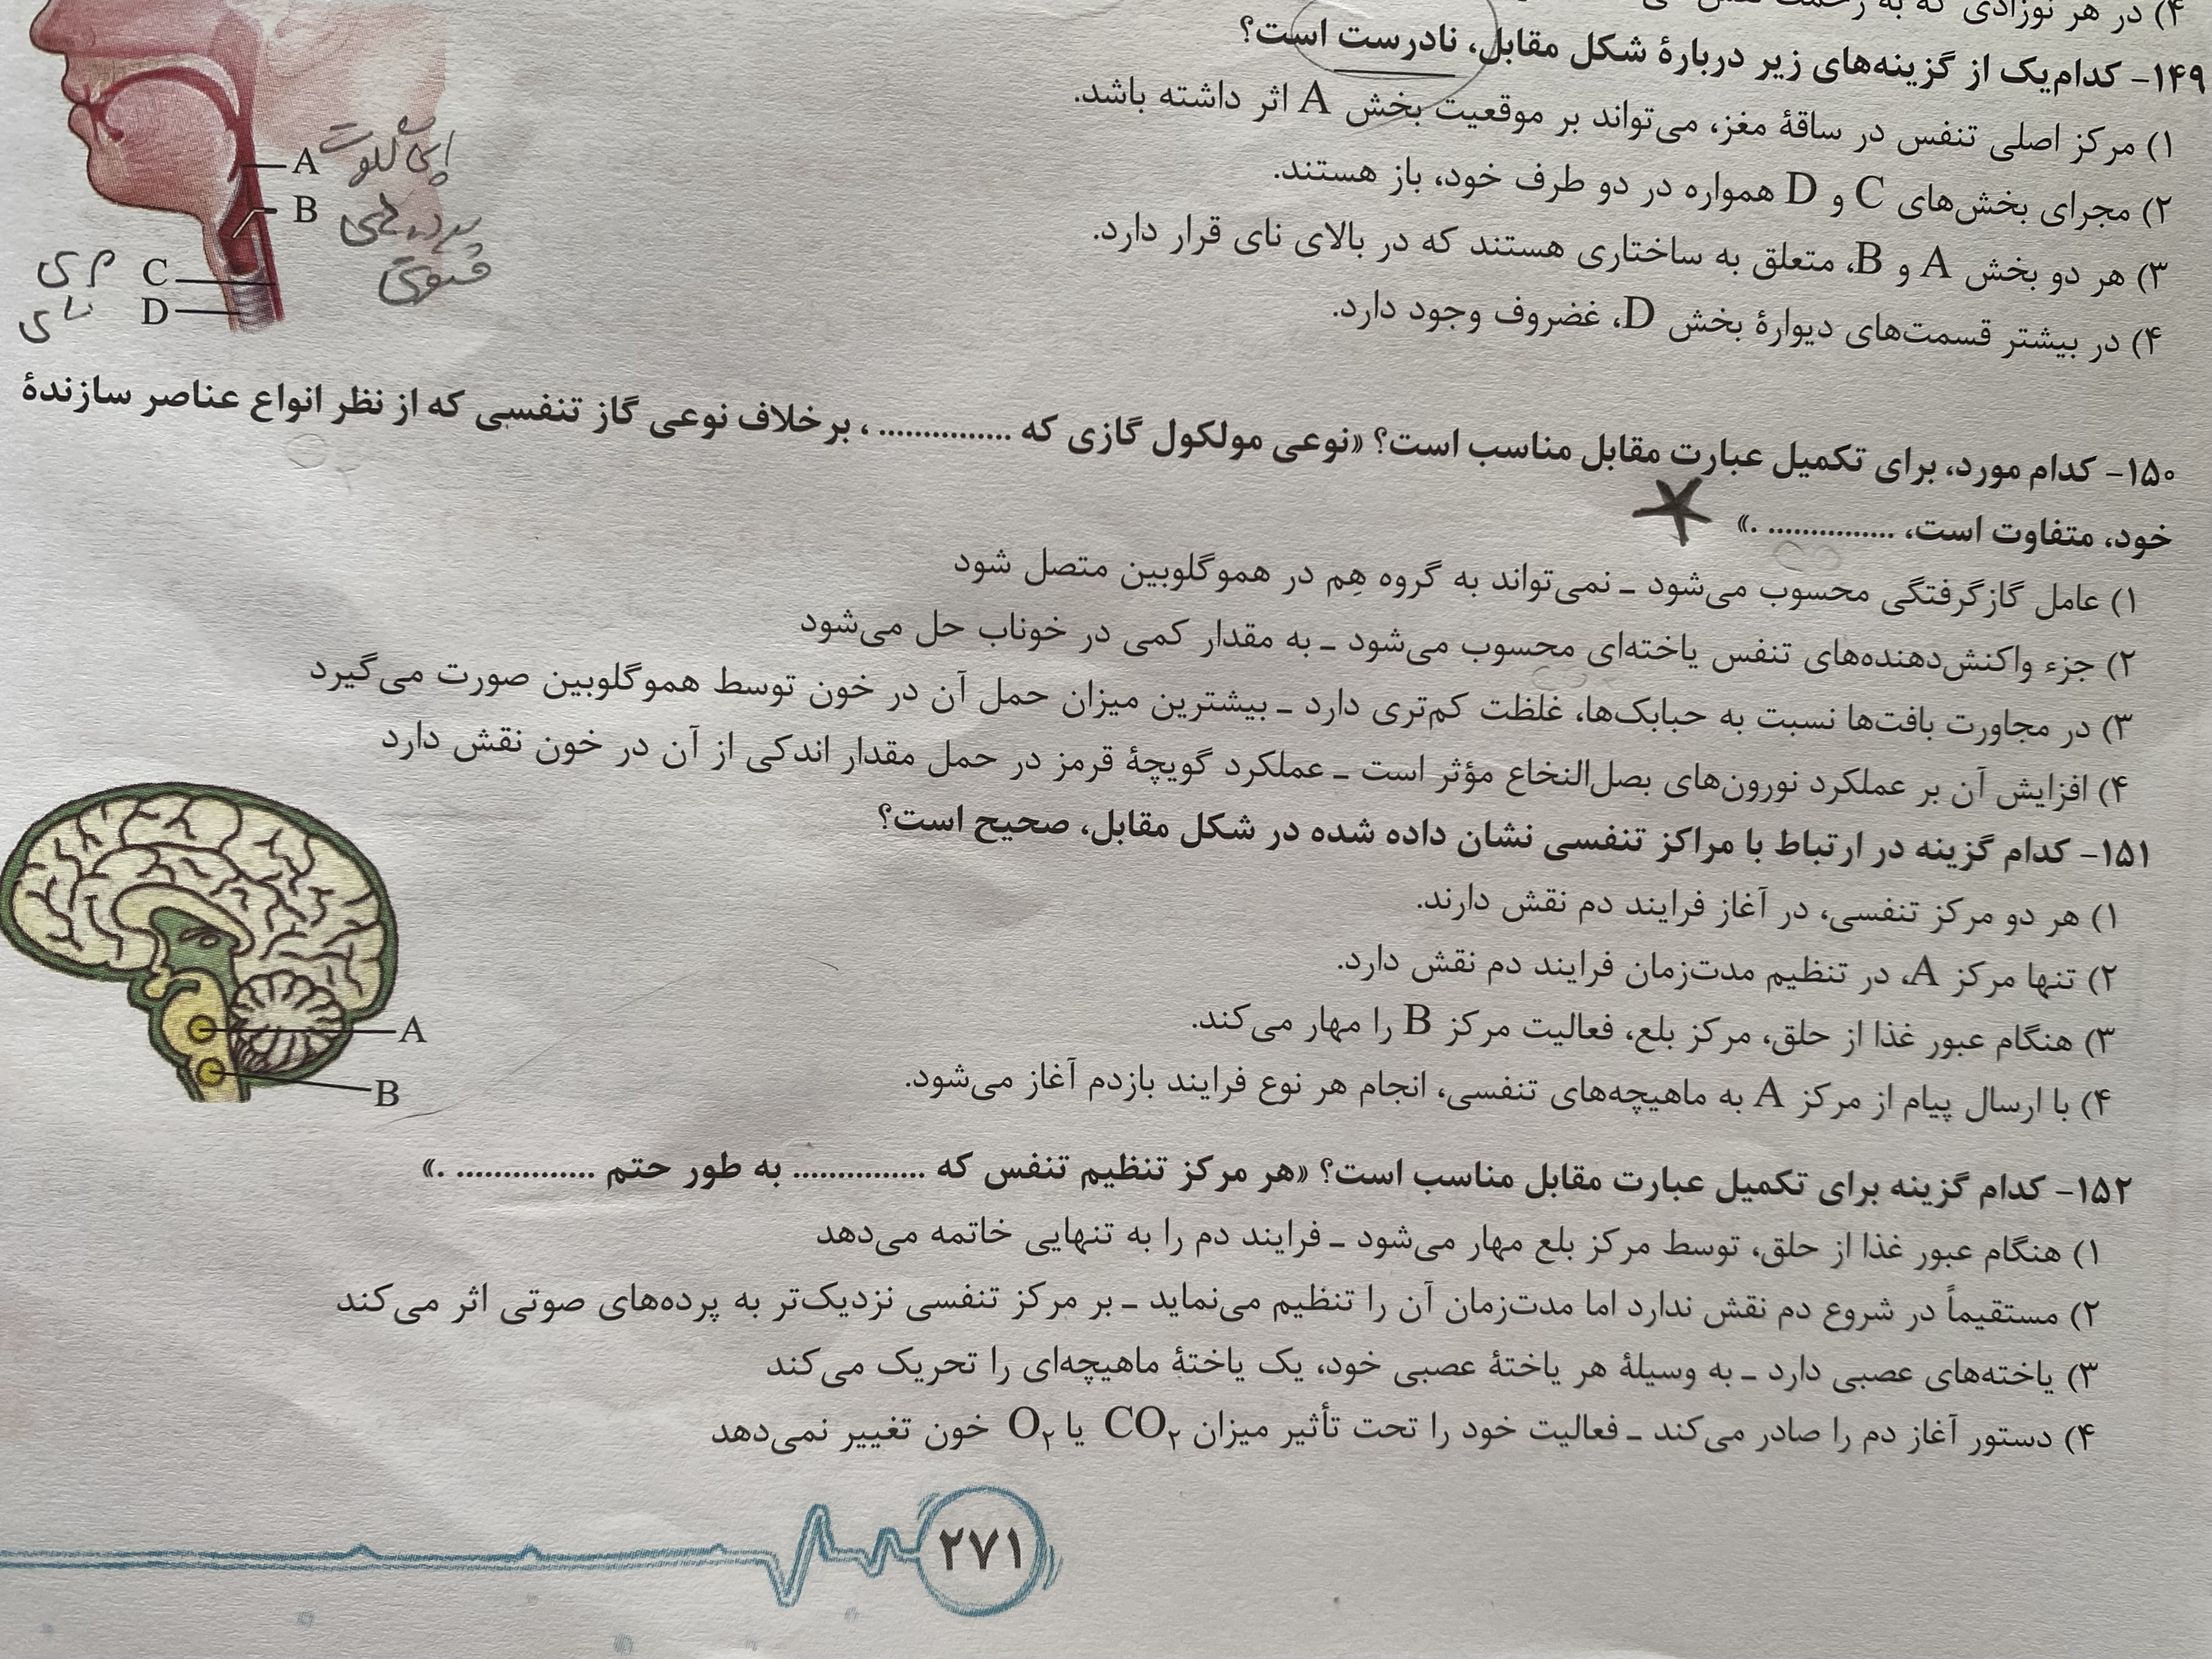 ۴) در هر نوزادی که به زحمت نفس
۱۴۹- کدام‌یک از گزینه‌های زیر دربارهٔ شکل مقابل، نادرست است؟
۱) مرکز اصلی تنفس در ساقهٔ مغز، می‌تواند بر موقعیت بخش A اثر داشته باشد.
۲) مجرای بخش‌های C و D همواره در دو طرف خود، باز هستند.
۳) هر دو بخش A و B، متعلق به ساختاری هستند که در بالای نای قرار دارد.
۴) در بیشتر قسمت‌های دیوارهٔ بخش D، غضروف وجود دارد.
A اپی گلوت
B پرده‌های
صوتی
C مری
D نای
۱۵۰- کدام مورد، برای تکمیل عبارت مقابل مناسب است؟ «نوعی مولکول گازی که ............... ، برخلاف نوعی گاز تنفسی که از نظر انواع عناصر سازندهٔ
خود، متفاوت است، ............... .»
۱) عامل گازگرفتگی محسوب می‌شود ـ نمی‌تواند به گروه هِم در هموگلوبین متصل شود
۲) جزء واکنش‌دهنده‌های تنفس یاخته‌ای محسوب می‌شود ـ به مقدار کمی در خوناب حل می‌شود
۳) در مجاورت بافت‌ها نسبت به حبابک‌ها، غلظت کم‌تری دارد ـ بیشترین میزان حمل آن در خون توسط هموگلوبین صورت می‌گیرد
۴) افزایش آن بر عملکرد نورون‌های بصل‌النخاع مؤثر است ـ عملکرد گویچهٔ قرمز در حمل مقدار اندکی از آن در خون نقش دارد
۱۵۱- کدام گزینه در ارتباط با مراکز تنفسی نشان داده شده در شکل مقابل، صحیح است؟
۱) هر دو مرکز تنفسی، در آغاز فرایند دم نقش دارند.
۲) تنها مرکز A، در تنظیم مدت‌زمان فرایند دم نقش دارد.
۳) هنگام عبور غذا از حلق، مرکز بلع، فعالیت مرکز B را مهار می‌کند.
۴) با ارسال پیام از مرکز A به ماهیچه‌های تنفسی، انجام هر نوع فرایند بازدم آغاز می‌شود.
A
B
۱۵۲- کدام گزینه برای تکمیل عبارت مقابل مناسب است؟ «هر مرکز تنظیم تنفس که ............... به طور حتم ............... .»
۱) هنگام عبور غذا از حلق، توسط مرکز بلع مهار می‌شود ـ فرایند دم را به تنهایی خاتمه می‌دهد
۲) مستقیماً در شروع دم نقش ندارد اما مدت‌زمان آن را تنظیم می‌نماید ـ بر مرکز تنفسی نزدیک‌تر به پرده‌های صوتی اثر می‌کند
۳) یاخته‌های عصبی دارد ـ به وسیلهٔ هر یاختهٔ عصبی خود، یک یاختهٔ ماهیچه‌ای را تحریک می‌کند
۴) دستور آغاز دم را صادر می‌کند ـ فعالیت خود را تحت تأثیر میزان CO۲ یا O۲ خون تغییر نمی‌دهد
۲۷۱